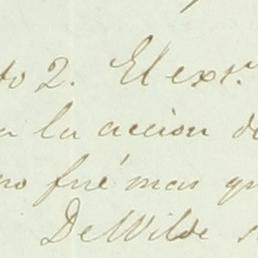 to 2. El exsr.
la accion de
no fué mas qu
De Wilde